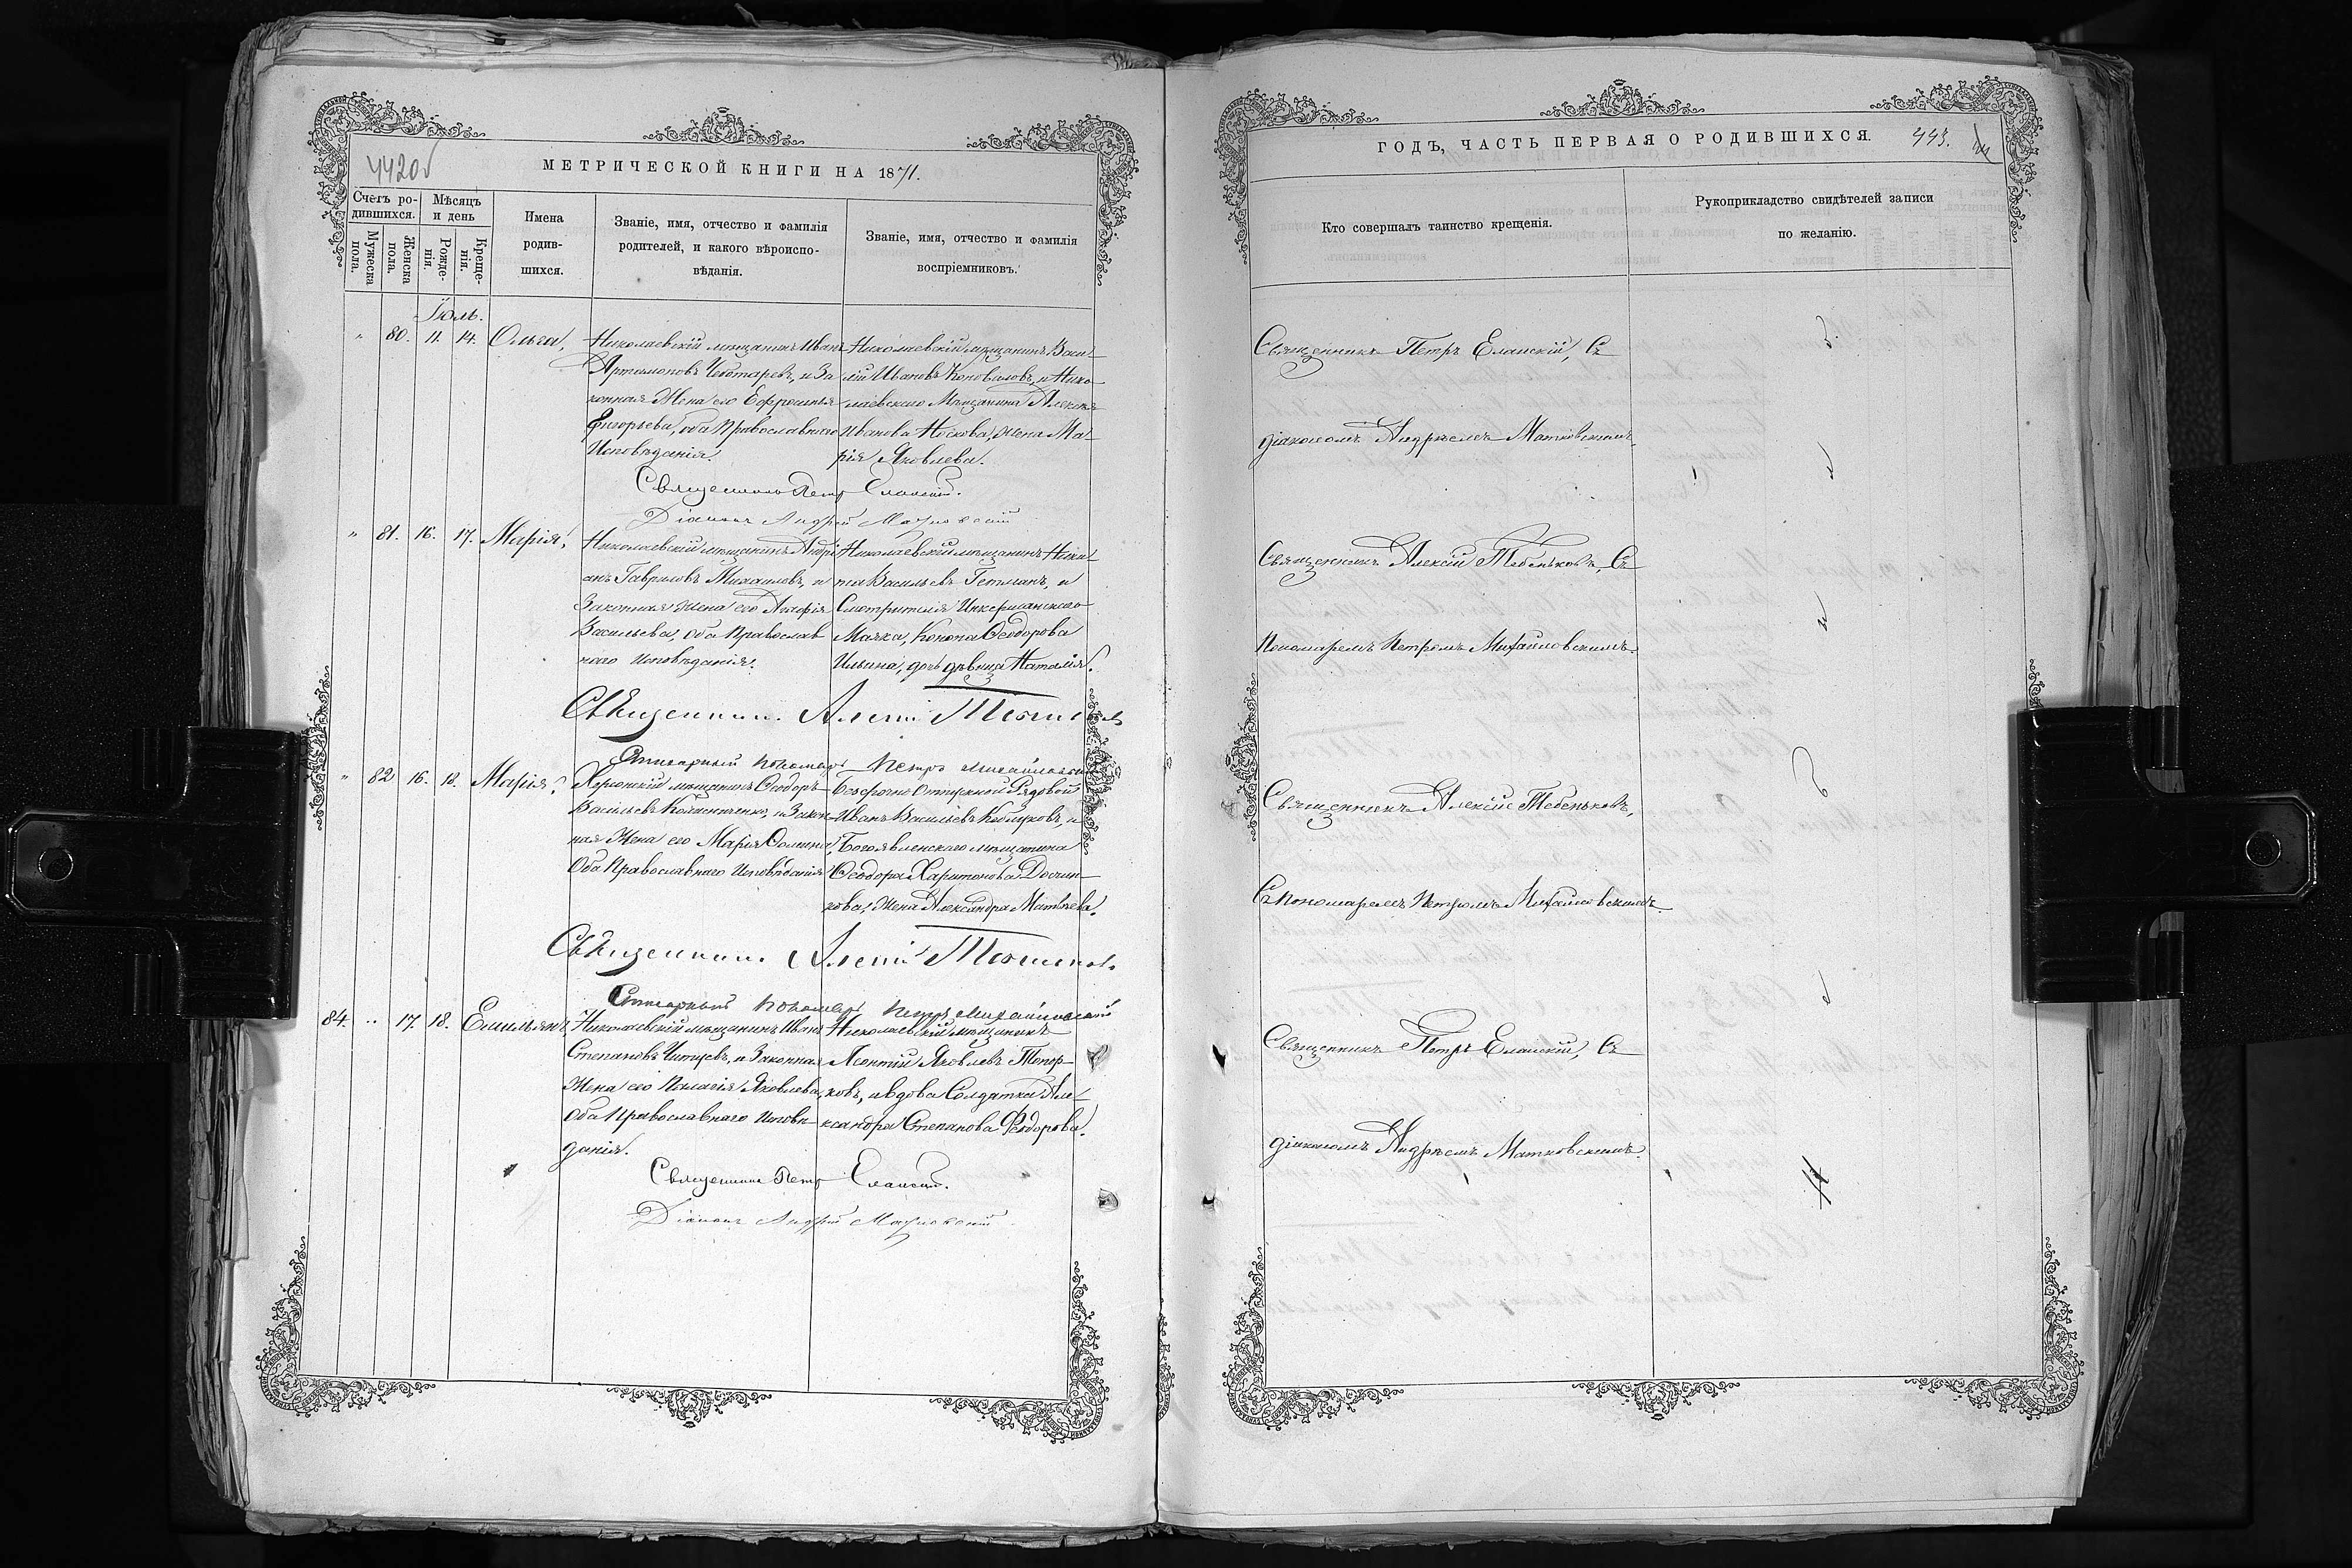 442об
МЕТРИЧЕСКОЙ КНИГИ НА 1871.
Счетъ ро-
дившихся.
Мѣсяцъ
и день
Мужеска
пола.
Женска
пола.
Рожде-
нія.
Креще-
нія.
Имена
родив-
шихся.
Званіе, имя, отчество и фамилія
родителей, и какого вѣроиспо-
вѣданія.
Званіе, имя, отчество и фамилія
воспріемниковъ.
Іюль.
" 80. 11. 14. Ольга,
Николаевскій мѣщанинъ Иванъ
Артамоновъ Чеботаревъ, и За
конная Жена его Евфросинья
Григорьева, оба Православнаго
Исповѣданія.
Николаевскій мѣщанинъ Васи-
лій Ивановъ Коноваловъ, и Нико-
лаевскаго Мѣщанина Алексѣя
Иванова Носкова, жена Ма-
рія Яковлева.
Священникъ Петръ Еланскій.
Діаконъ Андрей Матковскій
" 81. 16. 17. Марія,
Николаевскій мѣщанинъ Андрі
анъ Гавриловъ Михаиловъ, и
Законная жена его Агафія
Васильева, оба Православ
наго Исповѣданія.
Николаевскій мѣщанинъ Ники-
та Васильевъ Гетманъ, и
Смотрителя Инкерманскаго
Маяка, Конона Ѳеодорова
Ильина, дочь дѣвица Наталія.
Священникъ Алексій Тебеньковъ
Пономарь Петръ Михайловскій
" 82 16. 18. Марія,
Херсонскій мѣщанинъ Ѳеодоръ
Васильевъ и Закон-
ная Жена его Марія Ѳомина,
Оба Православнаго Исповѣданія
Безсрочно Отпускной Рядовой
Иванъ Васильевъ Каблуковъ, и
Богоявленскаго мѣщанина
Ѳеодора Харитонова
кова, Жена Александра Матвѣева.
Священникъ Алексій Тебеньковъ
Пономарь Петръ Михайловскій
84. " 17. 18. Емильянъ,
Николаевскій мѣщанинъ Иванъ
Степановъ и Законная
Жена его Пелагія Яковлева,
Оба Православнаго Исповѣ
данія.
Николаевскій мѣщанинъ
Леонтій Яковлевъ Топор-
ковъ, и вдова Солдатка Але-
ксандра Степанова Ѳеодорова.
Священникъ Петръ Еланскій.
Діаконъ Андрей Матковскій
ГОДЪ, ЧАСТЬ ПЕРВАЯ О РОДИВШИХСЯ.
443.
Кто совершалъ таинство крещенія.
Рукоприкладство свидѣтелей записи
по желанію.
Священникъ Петръ Еланскій, Съ
діакономъ Андреемъ Матковскимъ.
Священникъ Алексій Тебеньковъ, Съ
Пономаремъ Петромъ Михайловскимъ.
Священникъ Алексій Тебеньковъ,
Съ пономаремъ Петромъ Михайловскимъ.
Священникъ Петръ Еланскій, Съ
діакономъ Андреемъ Матковскимъ.